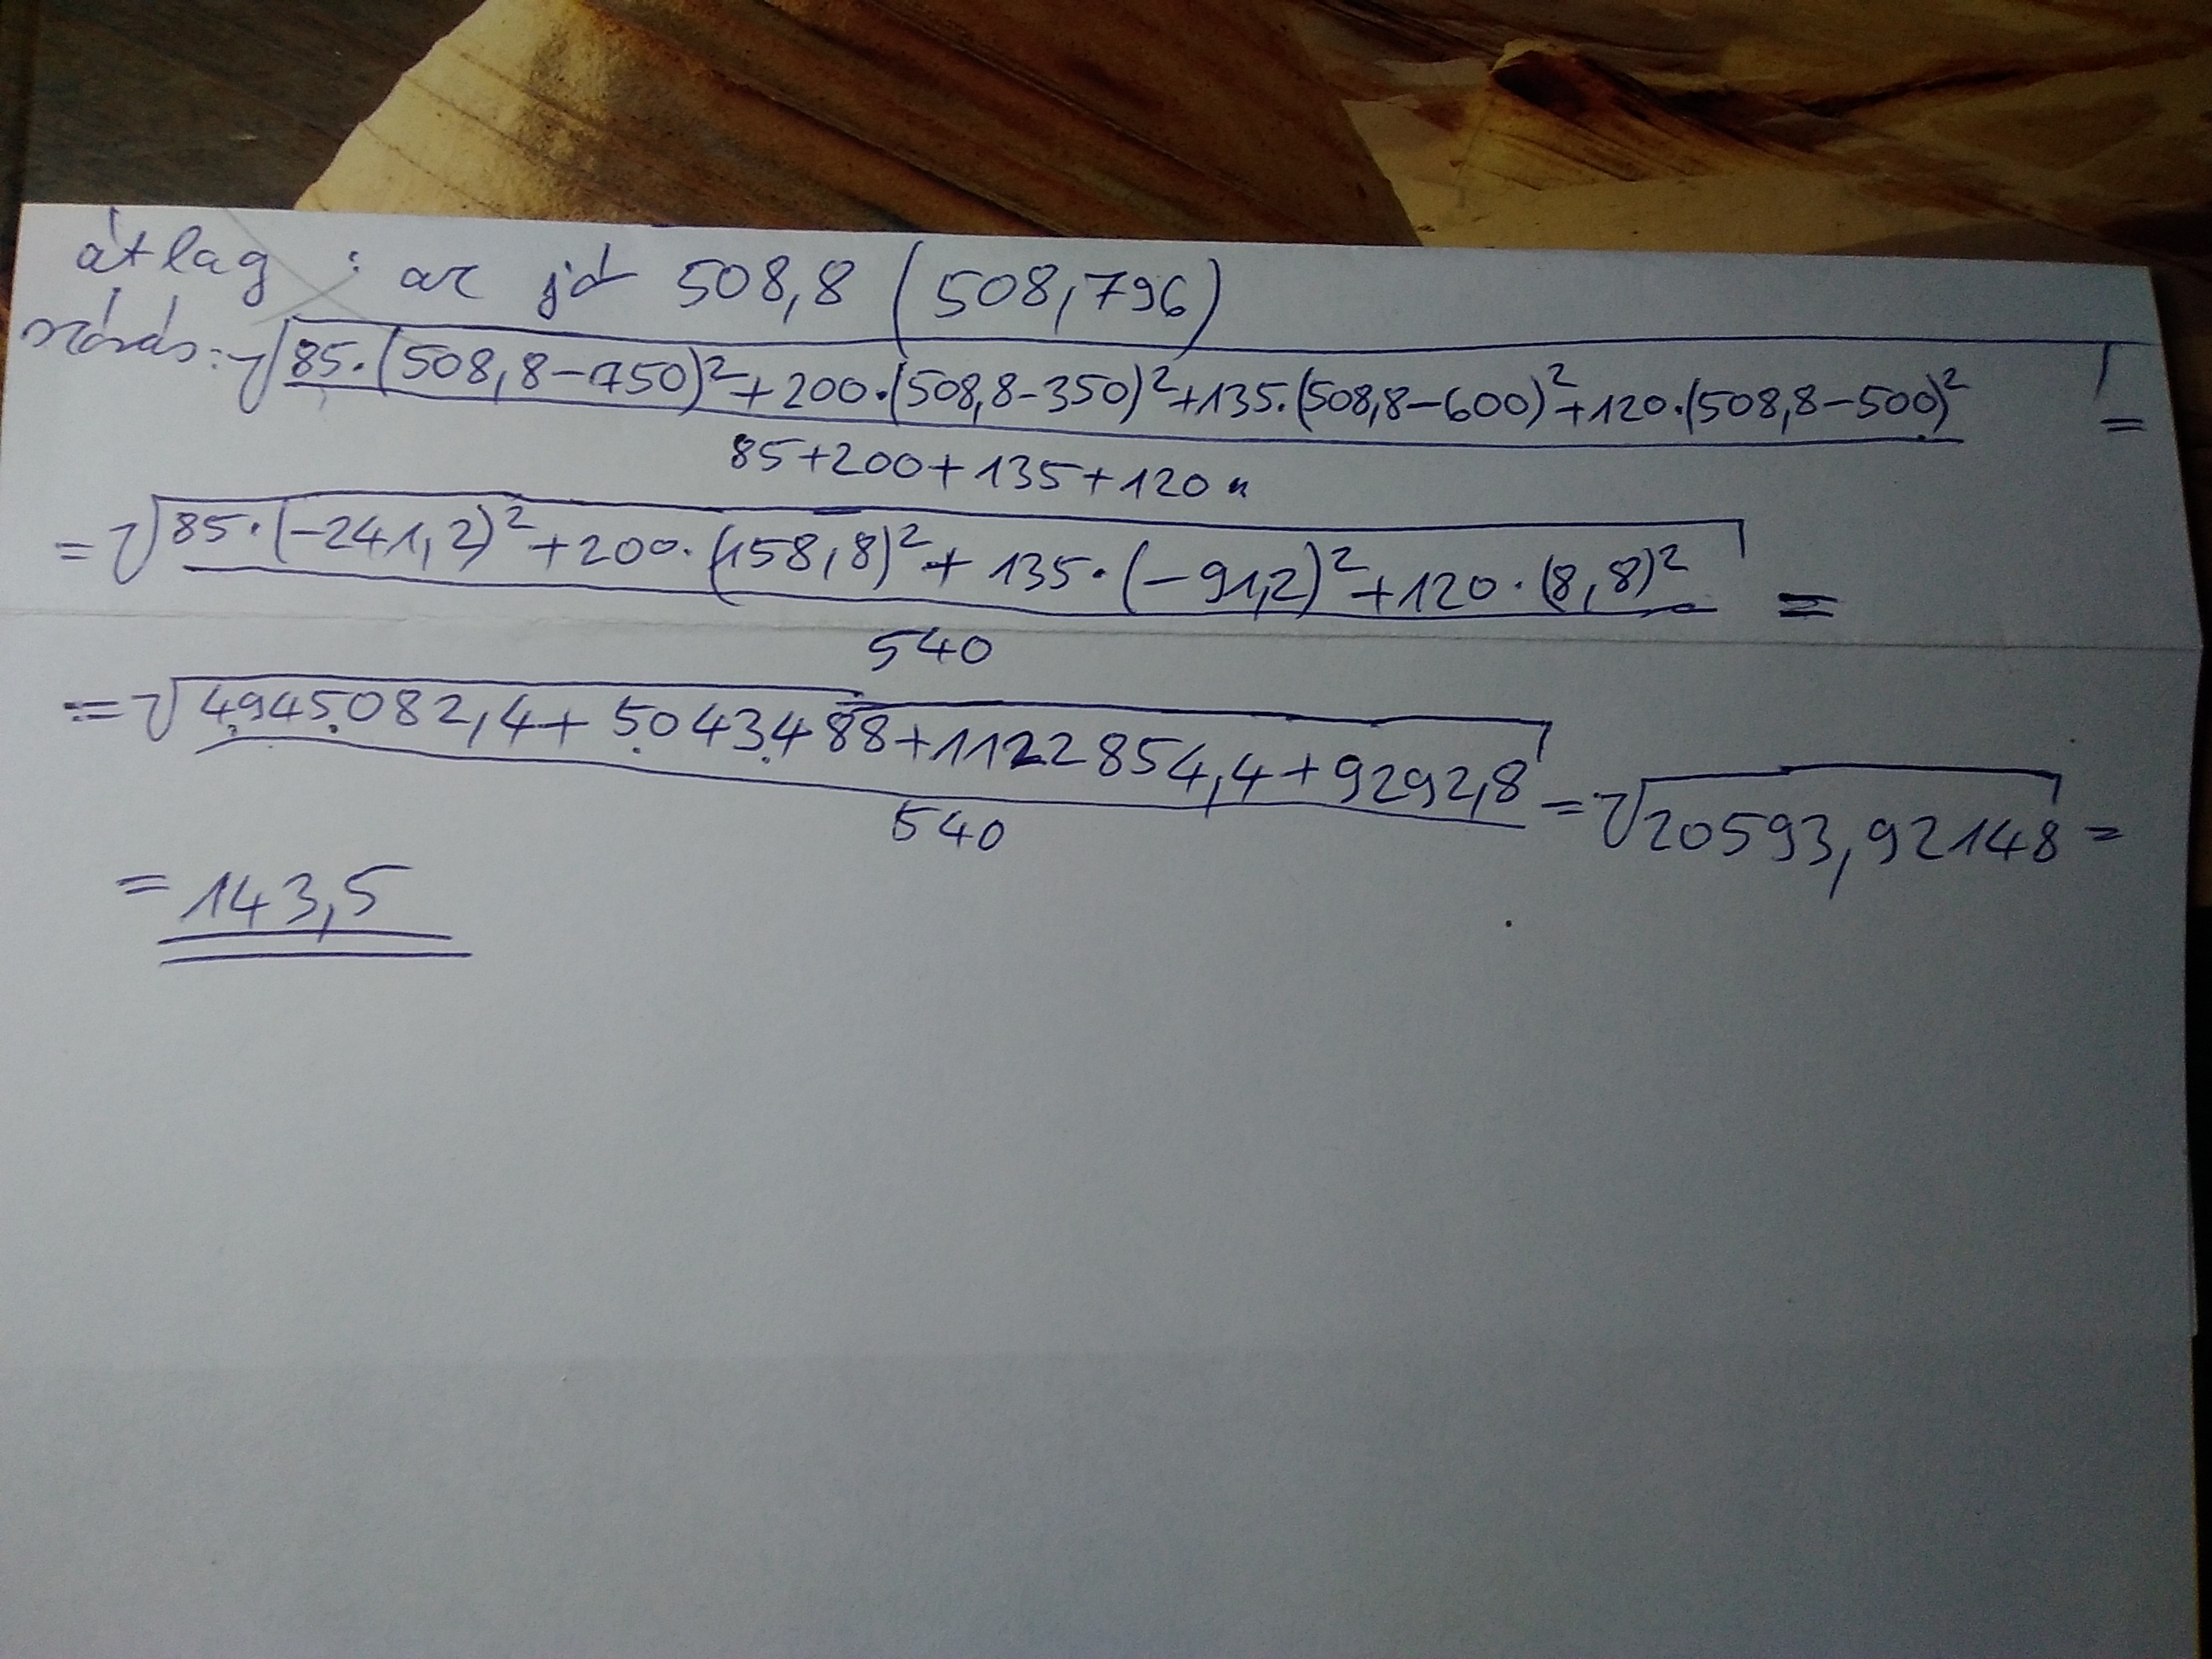 átlag : az jó 508,8 (508,796)
szórás: √85·(508,8-750)²+200·(508,8-350)²+135·(508,8-600)²+120·(508,8-500)² =
85+200+135+120
= √85·(-241,2)²+200·(158,8)²+135·(-91,2)²+120·(8,8)² =
540
= √4945082,4+5043488+1122854,4+9292,8 = √20593,92148 =
540
= 143,5